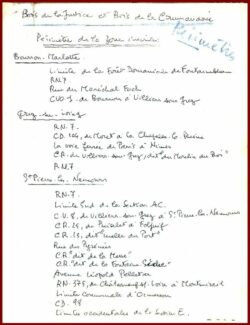 Bois de la Justice et Bois de la Commanderie
Périmètre de la zone
Périmètre
Bourron-Marlotte
Limite de la Forêt Domaniale de Fontainebleau
RN.7
Rue du Maréchal Foch
CVO 1. de Bourron à Villiers sous Grez
Grez-sur-Loing
RN.7.
CD. 104, de Moret à la Chapelle la Reine
La voie ferrée de Paris à Nîmes
C.R. de Villiers-sous-Grez, dit "du Moulin du Bois"
RN.7
St Pierre-les-Nemours
RN.7.
Limite Sud de la Section AC.
C.V. 8, de Villiers-sous-Grez à St Pierre-les-Nemours
C.R. 25, de à
C.R. 13, dit " du Port"
Rue des Pyrénées
C.R. "dit de la "
C.R. "dit de la Fontaine "
Avenue Léopold Pelletier
RN. 375, de à Montereau
Limite communale d'Ormesson
CD.
Limite occidentale de la Section E.